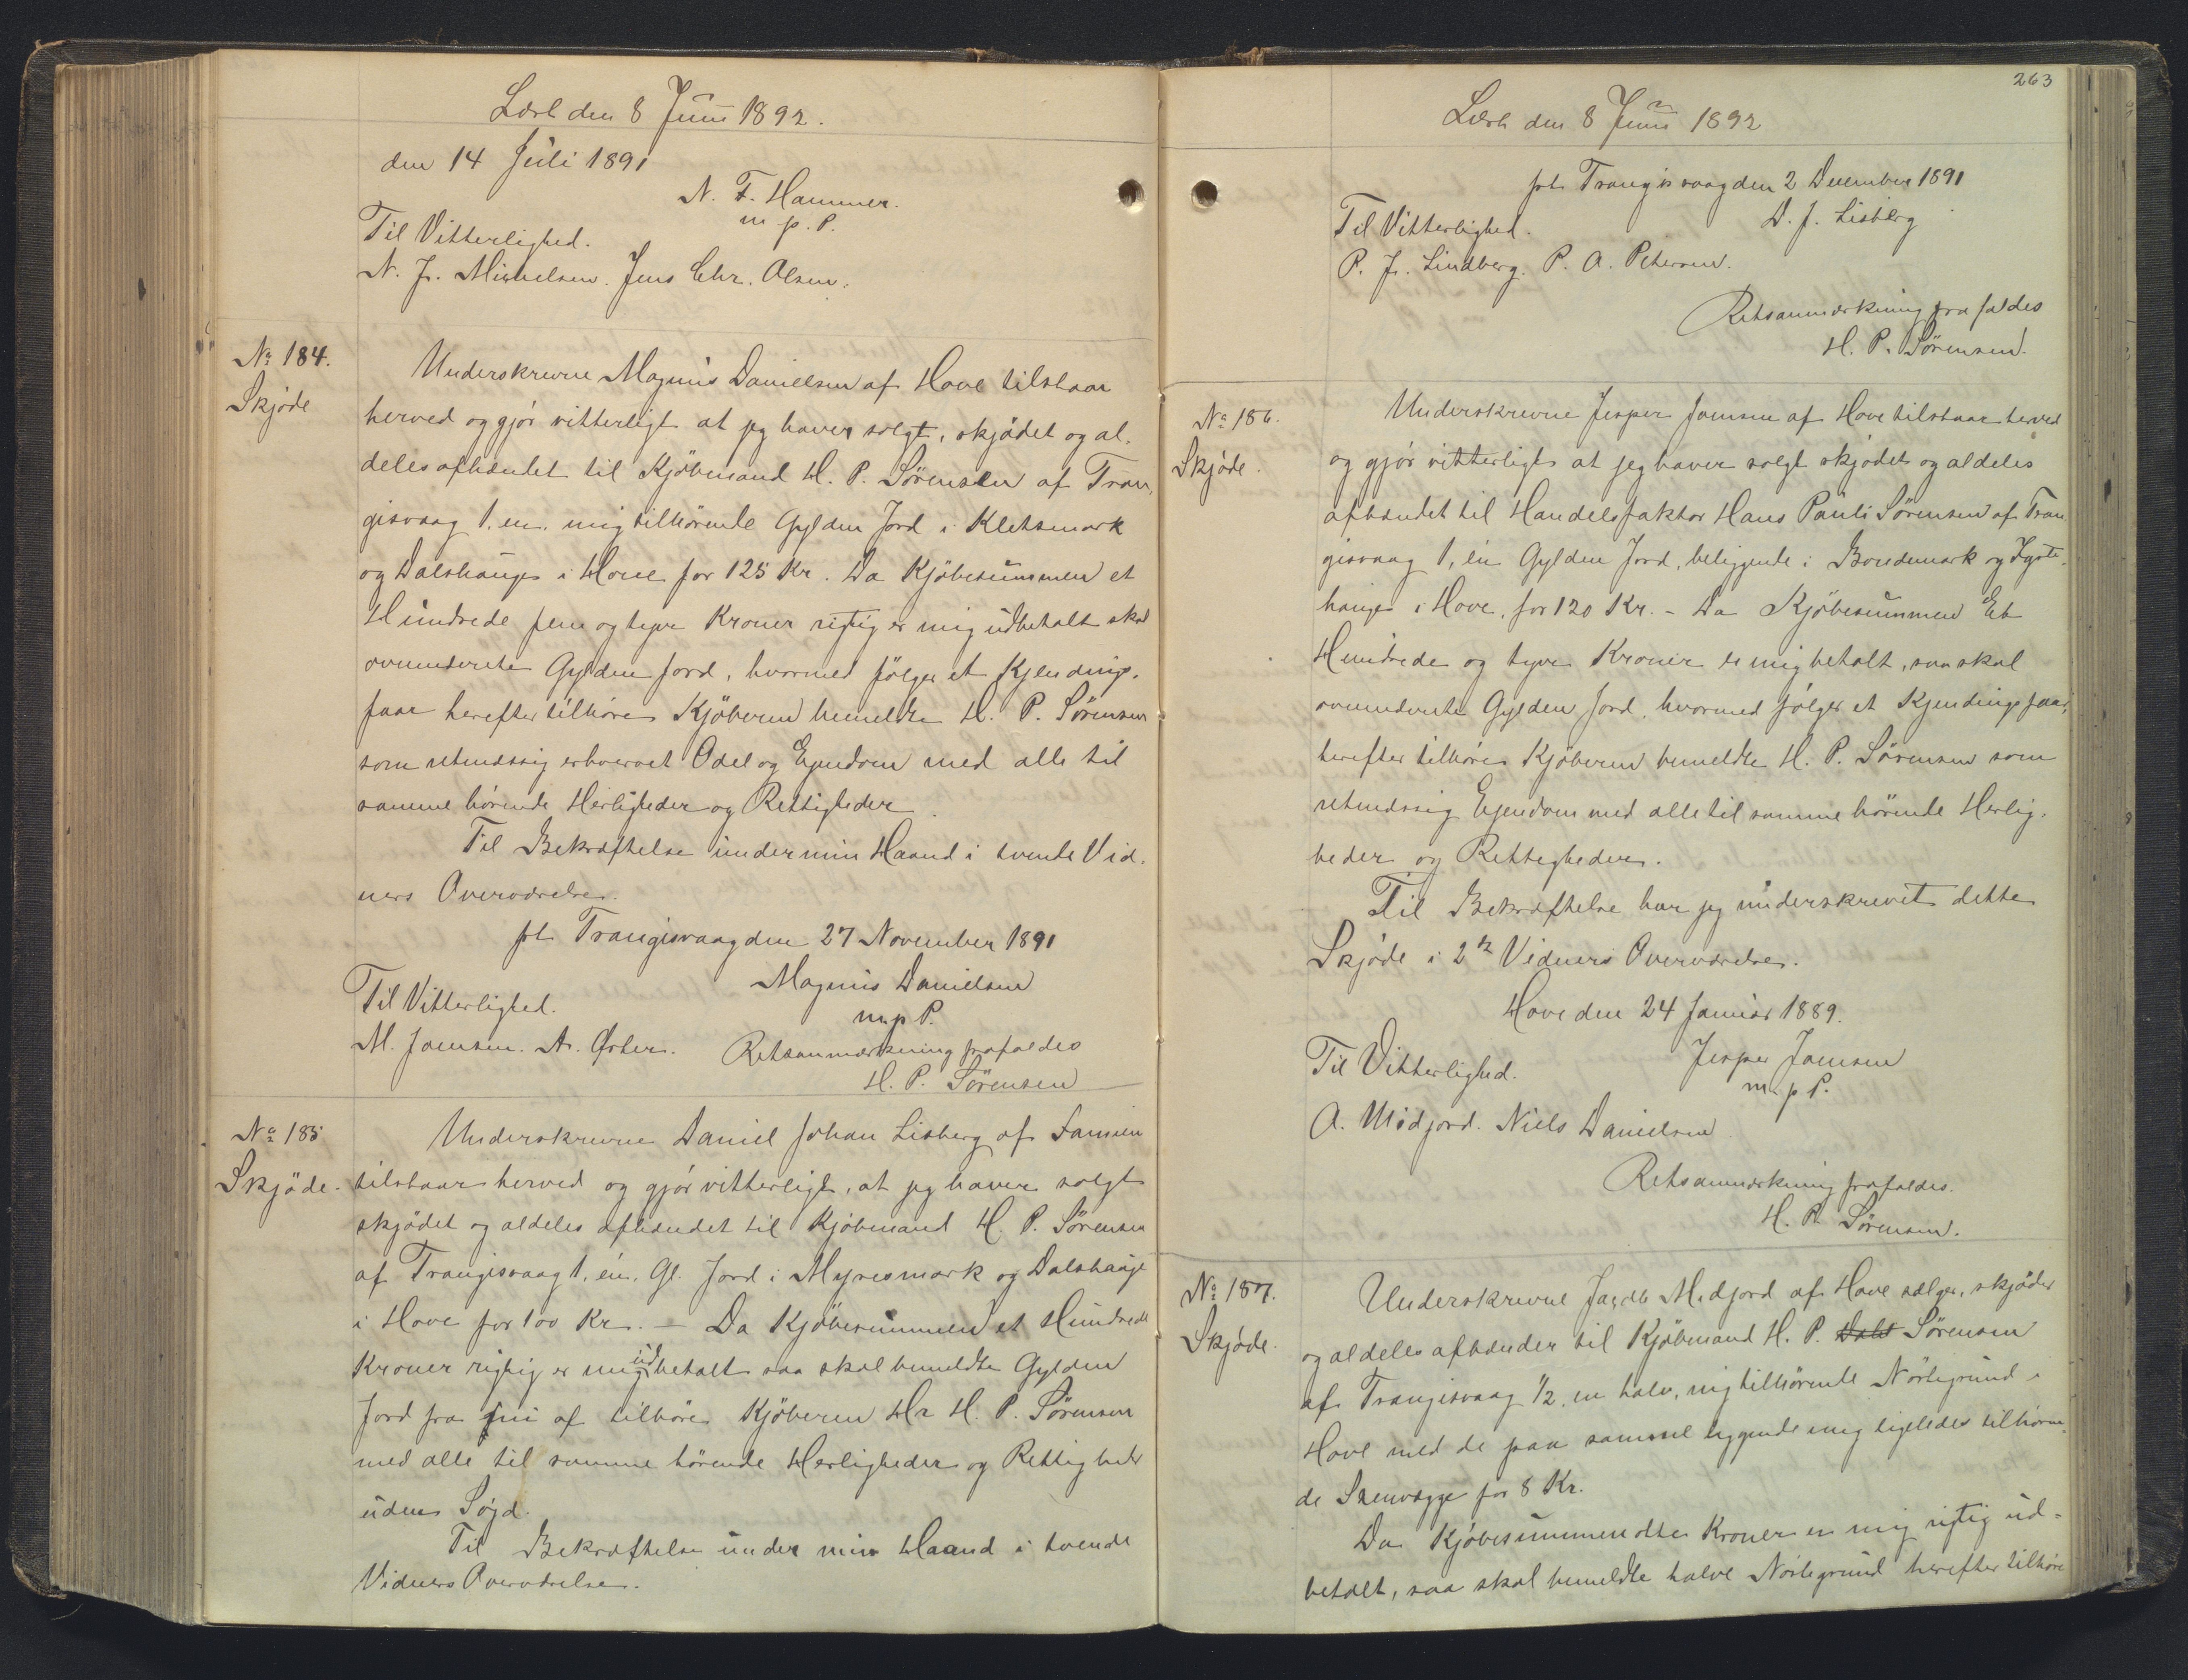 Læst den 8 Juni 1892.
den 14 Juli 1891
N. F. Hammer.
m. p. P.
Til Vitterlighed.
N. J. Michelsen. Jens Chr. Olsen.
No 184.
Skjøde
Underskrevne Magnus Danielsen af Hove tilstaar
herved og gjör vitterligt at jeg haver solgt, skjödet og al-
deles afhændet til Kjöbmand H. P. Sörensen af Tran-
gisvaag 1, en, mig tilhörende Gylden Jord i Kletsmark
og Dalshauge i Hove for 125 Kr. Da Kjöbesummen et
Hundrede fem og tyve Kroner rigtig er mig udbetalt skal
ovennævnte Gylden Jord, hvormed fölger et Kjendings-
faar herefter tilhöre Kjöberen bemeldte H. P. Sörensen
som retmæssig erhvervet Odel og Ejendom med alle til
samme hörende Herligheder og Rettigheder.
Til Bekræftelse under min Haand i tvende Vid-
ners Overværelse.
pt Trangisvaag den 27 November 1891
Magnus Danielsen
m. p. P.
Til Vitterlighed.
M. Joensen. A.
Retsanmærkning frafaldes
H. P. Sörensen
No 185
Skjöde.
Underskrevne Daniel Johan Lisberg af Famien
tilstaar herved og gjör vitterligt, at jeg haver solgt
skjödet og aldeles afhændet til Kjöbmand H. P. Sörensen
af Trangisvaag 1, én, Gl. Jord i Myresmark og Dalshauge
i Hove for 100 Kr. – Da Kjöbesummen et Hundrede
Kroner rigtig er mig udbetalt saa skal bemeldte Gylden
Jord fra nu af tilhöre Kjöberen Hr H. P. Sörensen
med alle til samme hörende Herligheder og Rettigheder
uden Søjd.
Til Bekræftelse under min Haand i tvende
Vidners Overværelse.
263
Læst den 8 Juni 1892
pt. Trangisvaag den 2 December 1891
D. J. Lisberg
Til Vitterlighed.
P. Fr. Lindberg. P. A. Petersen.
Retsanmærkning frafaldes
H. P. Sörensen.
No 186.
Skjöde.
Underskrevne Jesper Joensen af Hove tilstaar herved
og gjör vitterligt at jeg haver solgt skjödet og aldeles
afhændet til Handelsfaktor Hans Pauli Sörensen af Tran
gisvaag 1, én Gylden Jord, beliggende i Bondemark og
hauge i Hove, for 120 Kr. – Da Kjöbesummen Et
Hundrede og tyve Kroner er mig betalt, saa skal
ovennævnte Gylden Jord, hvormed fölger et Kjendingsfaar,
herefter tilhöre Kjöberen bemeldte H. P. Sörensen som
retmæssig Ejendom med alle til samme hörende Herlig-
heder og Rettigheder.
Til Bekræftelse har jeg underskrevet dette
Skjöde i 2de Vidners Overværelse.
Hove den 24 Januar 1889.
Jesper Joensen
m. p. P.
Til Vitterlighed.
A. Midjord. Niels Danielsen
Retsanmærkning frafaldes.
H. P. Sörensen.
No 187.
Skjöde.
Underskrevne Jacob Midjord af Hove sælger, skjöder
og aldeles afhænder til Kjöbmand H. P. Dahl Sörensen
af Trangisvaag 1/2, en halv, mig tilhörende Nöstegrund i
Hove med de paa samme liggende mig ligeledes tilhören-
de Stenvægge for 8 Kr.
Da Kjöbesummen otte Kroner er mig rigtig ud-
betalt, saa skal bemeldte halve Nöstegrund herefter tilhöre